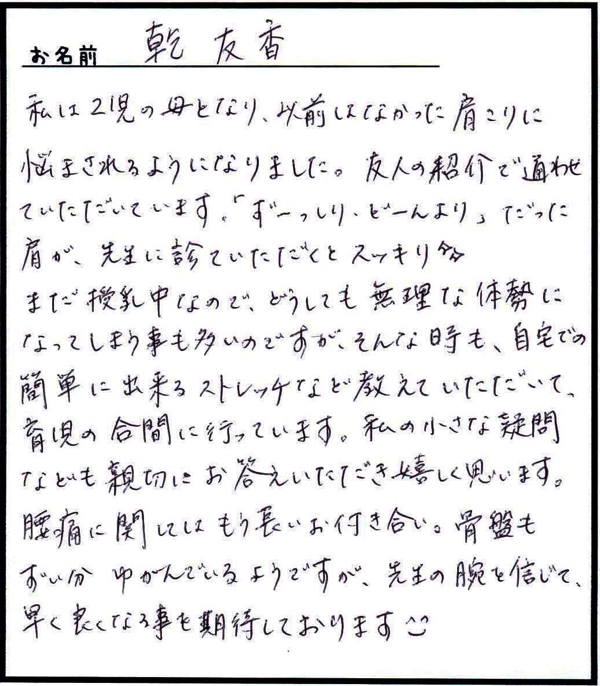 お名前 乾 友香
私は2児の母となり、以前はなかった肩こりに
悩まされるようになりました。友人の紹介で通わせ
ていただいています。「ずーっしり・どーんより」だった
肩が、先生に診ていただくとスッキリ
まだ授乳中なので、どうしても無理な体勢に
なってしまう事も多いのですが、そんな時も、自宅での
簡単に出来るストレッチなど教えていただいて、
育児の合間に行っています。私の小さな疑問
なども親切にお答えいただき嬉しく思います。
腰痛に関してはもう長いお付き合い。骨盤も
ずい分ゆがんでいるようですが、先生の腕を信じて、
早く良くなる事を期待しております